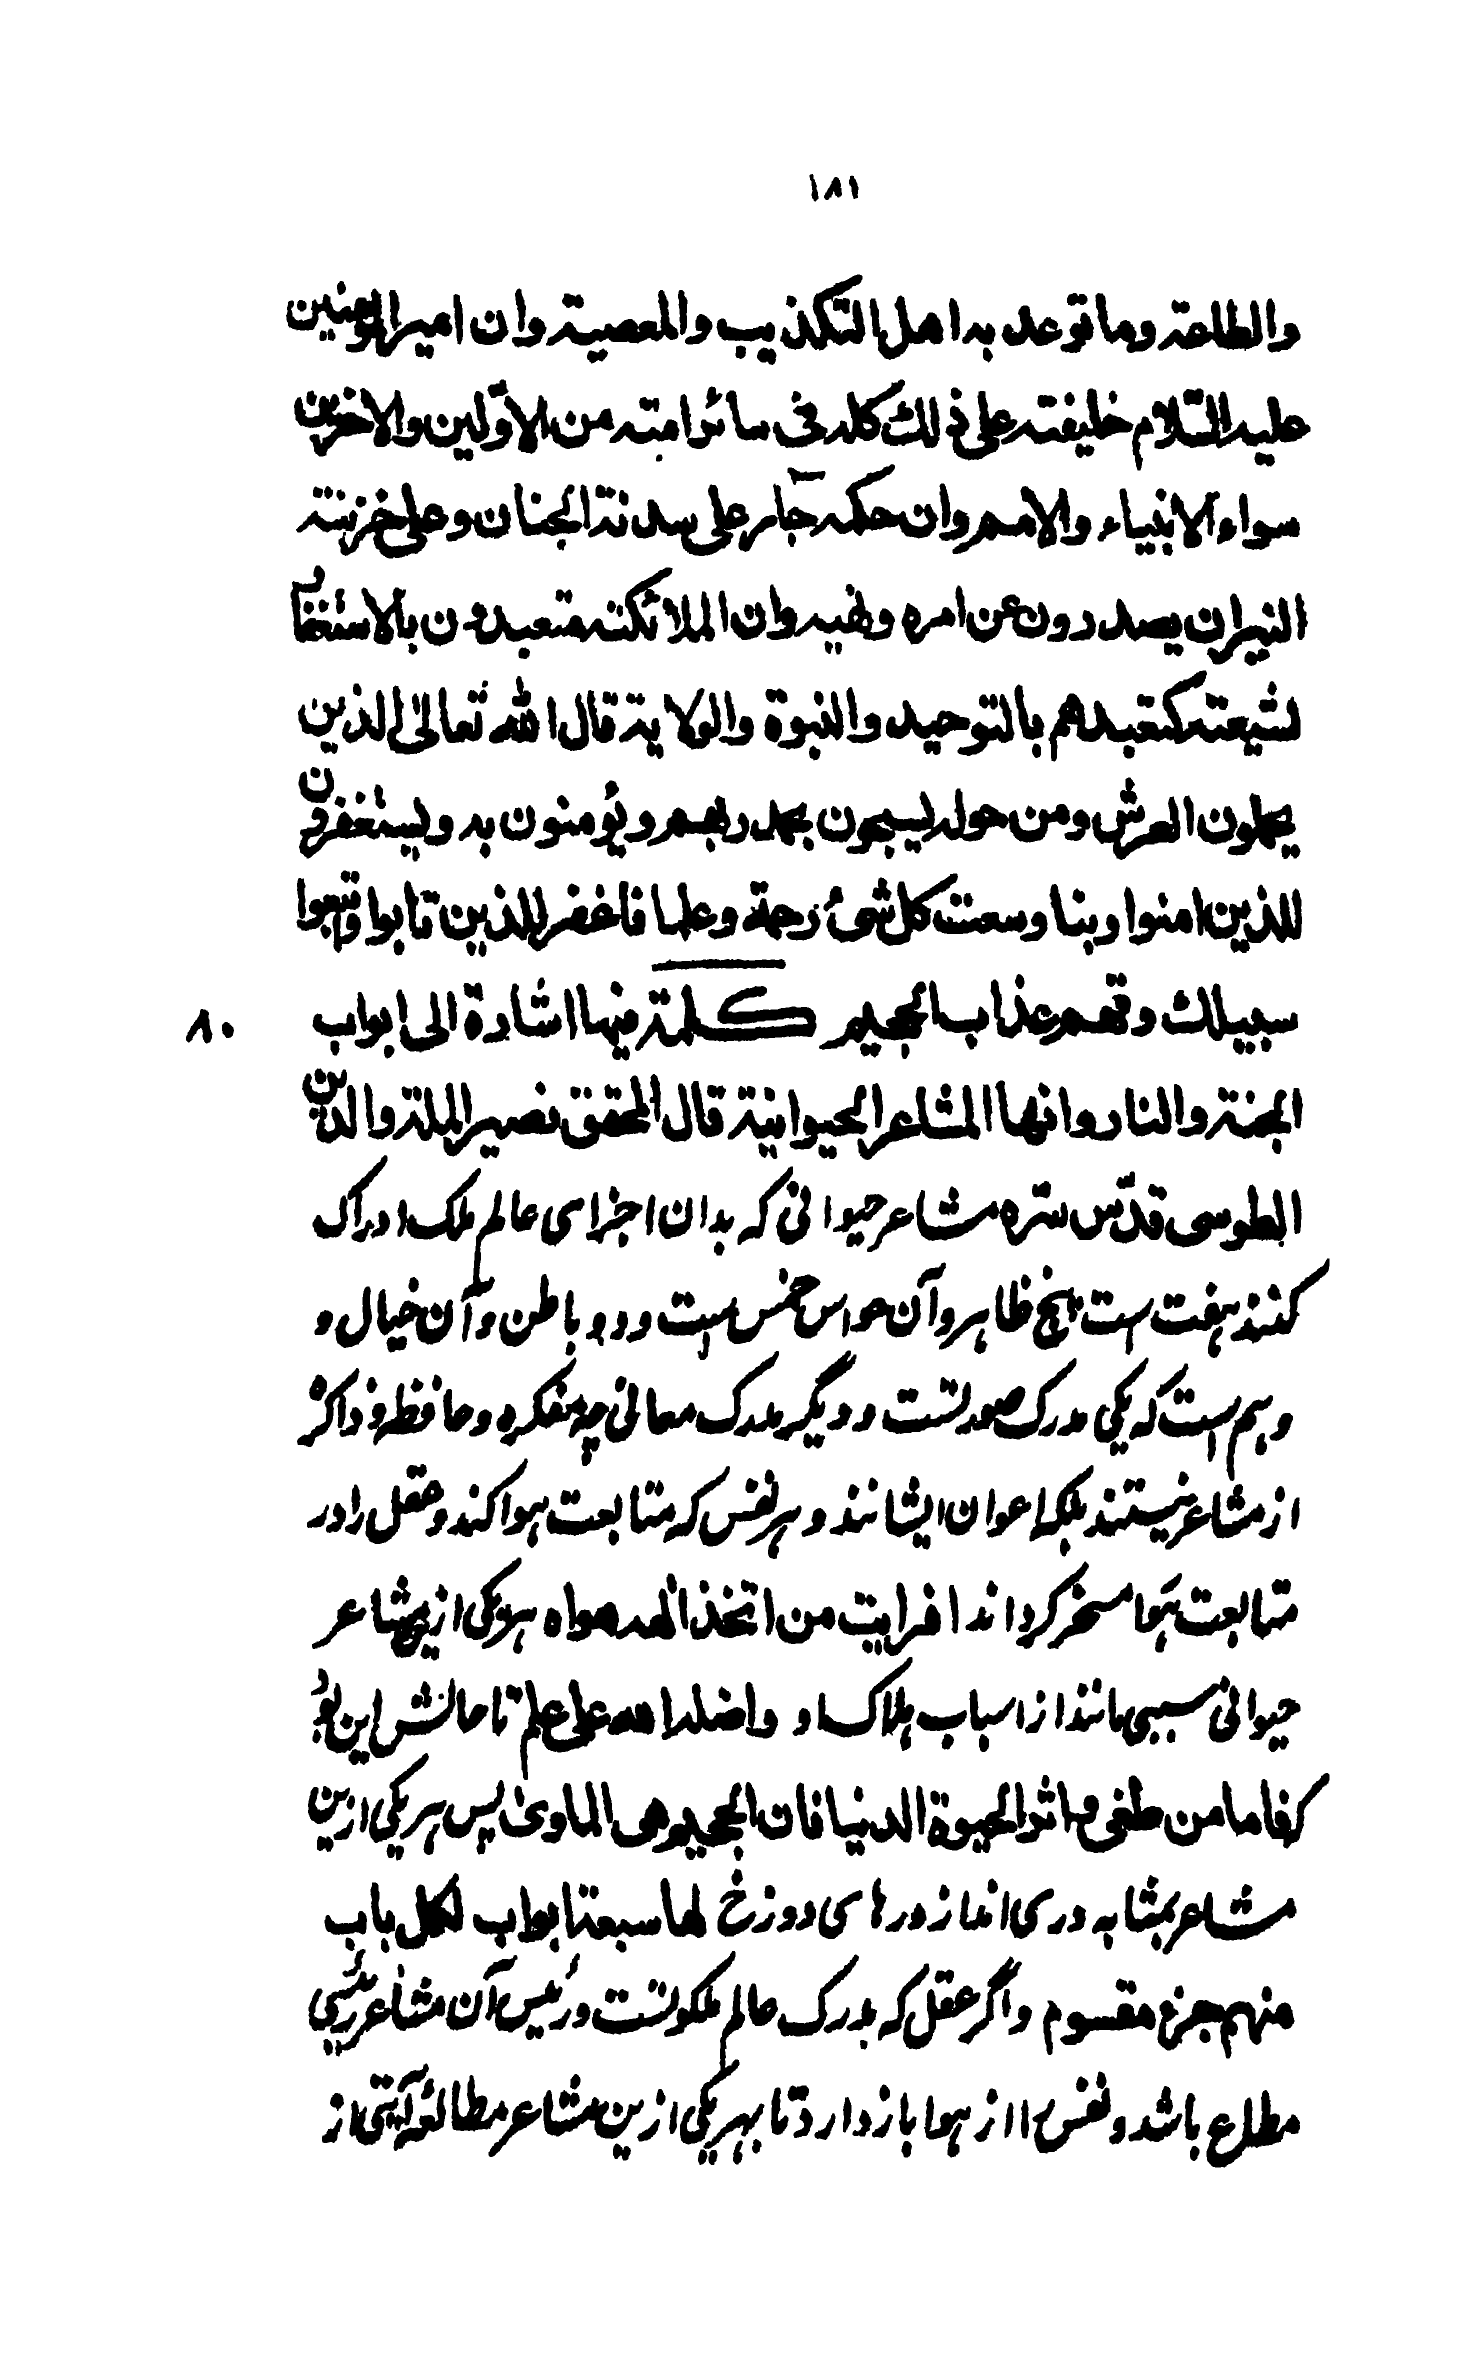 ۱۸۱
والطاعة وما توعد به اهل التكذيب والمعصية وان امير المؤمنين
عليه السّلام خليفته على ذلك كله في سائر امته من الاوّلين والاخرين
سواء الانبياء والامم وان حكمه جار على سدنة الجنان وعلى خزنة
النيران يصدرون عن امره ونهيه وان الملائكة متعبدون بالاستغفار
لشيعته كتعبدهم بالتوحيد والنبوة والولاية قال الله تعالى الذين
يحملون العرش ومن حوله يسبحون بحمد ربهم ويؤمنون به ويستغفرون
للذين امنوا ربنا وسعت كل شئ رحمة وعلما فاغفر للذين تابوا واتبعوا
سبيلك وقهم عذاب الجحيم كلمة فيها اشارة الى ابواب
۸۰
الجنة والنار وانها المشاعر الحيوانية قال المحقق نصير الملة والدين
الطوسى قدّس سرّه مشاعر حيوانى كه بدان اجزاى عالم ملك ادراك
كنند هفت است پنج ظاهر وآن حواس خمس است ودو باطن وآن خيال و
وهم است كه يكى مدرك صورتست وديگر مدرك معانى چه مفكره وحافظه وذاكره
از مشاعر نيستند بلكه اعوان ايشانند وهر نفس كه متابعت هوا كند وعقل را در
متابعت هوا مسخر كرداند افرايت من اتخذ الهه هواه هريكى ازين مشاعر
حيوانى سببى مانند از اسباب هلاك او واضله الله على علم تا حالش اين بود
كه فاما من طغى واثر الحيوة الدنيا فان الجحيم هى الماوى پس هر يكى ازين
مشاعر بمثابه درى اند از درهاى دوزخ لها سبعة ابواب لكل باب
منهم جزء مقسوم واگر عقل كه مدرك عالم ملكوتست ورئيس آن مشاعر رئيسى
مطاع باشد ونفس را از هوا باز دارد تا بهر يكى ازين مشاعر مطالعه آيتى از